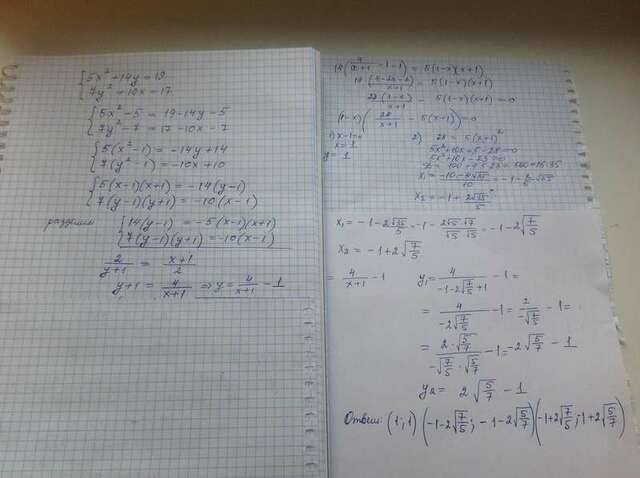 {5x² + 14y = 19
{7y² = 10x = 17
{5x² - 5 = 19 - 14y - 5
{7y² - 7 = 17 - 10x - 7
{5(x² - 1) = -14y + 14
{7(y² - 1) = -10x + 10
{5(x-1)(x+1) = -14(y-1)
{7(y-1)(y+1) = -10(x-1)
разделим {14(y-1) = -5(x-1)(x+1)
{7(y-1)(y+1) = -10(x-1)
2/(y+1) = (x+1)/2
y+1 = 4/(x+1) ⇒ y = 4/(x+1) - 1
14(4/(x+1) - 1 - 1) = 5(1-x)(x+1)
5(1-x)(x+1)
28(1-x)/(x+1) - 5(1-x)(x+1) = 0
(1-x)(28/(x+1) - 5(x+1)) = 0
x = 1
y = 1
2) 28 = 5(x+1)²
5x² + 10x + 5 - 28 = 0
5x² + 10x - 23 = 0
x₂ = -1 + 2√35/5
x₁ = -1 - 2√35/5 = -1 - 2√5·√7/√5·√5 = -1 - 2√(7/5)
x₂ = -1 + 2√(7/5)
= 4/(x+1) - 1 y₁ = 4/(-1-2√(7/5)+1) - 1 =
= 4/(-2√(7/5)) - 1 = 2/(-√(7/5)) - 1 =
= 2·√(5/7)/(-√(7/5)·√(5/7)) - 1 = -2√(5/7) - 1
y₂ = 2√(5/7) - 1
Ответ: (1; 1) (-1-2√(7/5); -1-2√(5/7)) (-1+2√(7/5); 1+2√(5/7))